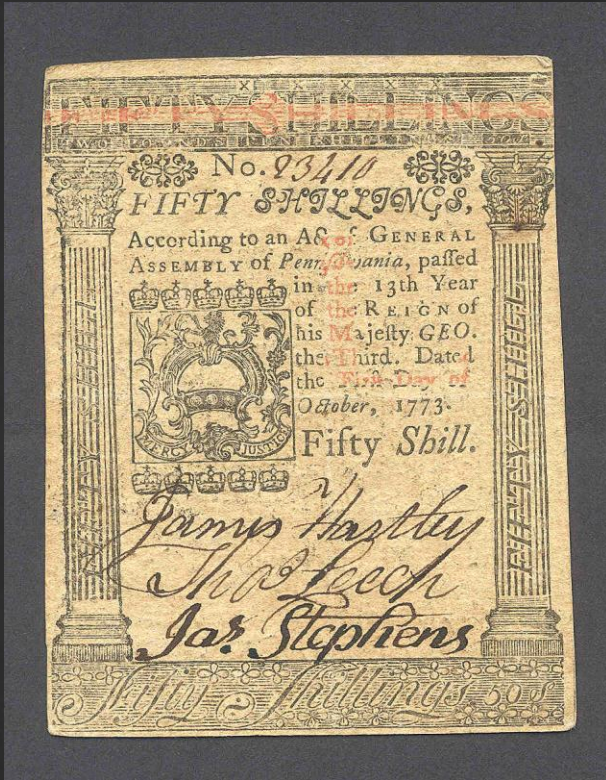 FIFTY SHILLINGS
No. 23410
FIFTY SHILLINGS,
According to an Act of GENERAL
ASSEMBLY of Pennsylvania, paſſed
in the 13th Year
of the REIGN of
his Majeſty GEO.
the Third. Dated
the Firſt Day of
October, 1773.
MERCY JUSTICE
Fifty Shill.
FIFTY SHILL
FIFTY SHILL
James Hartley
Thos Leech
Jas. Stephens
Fifty Shillings 50s